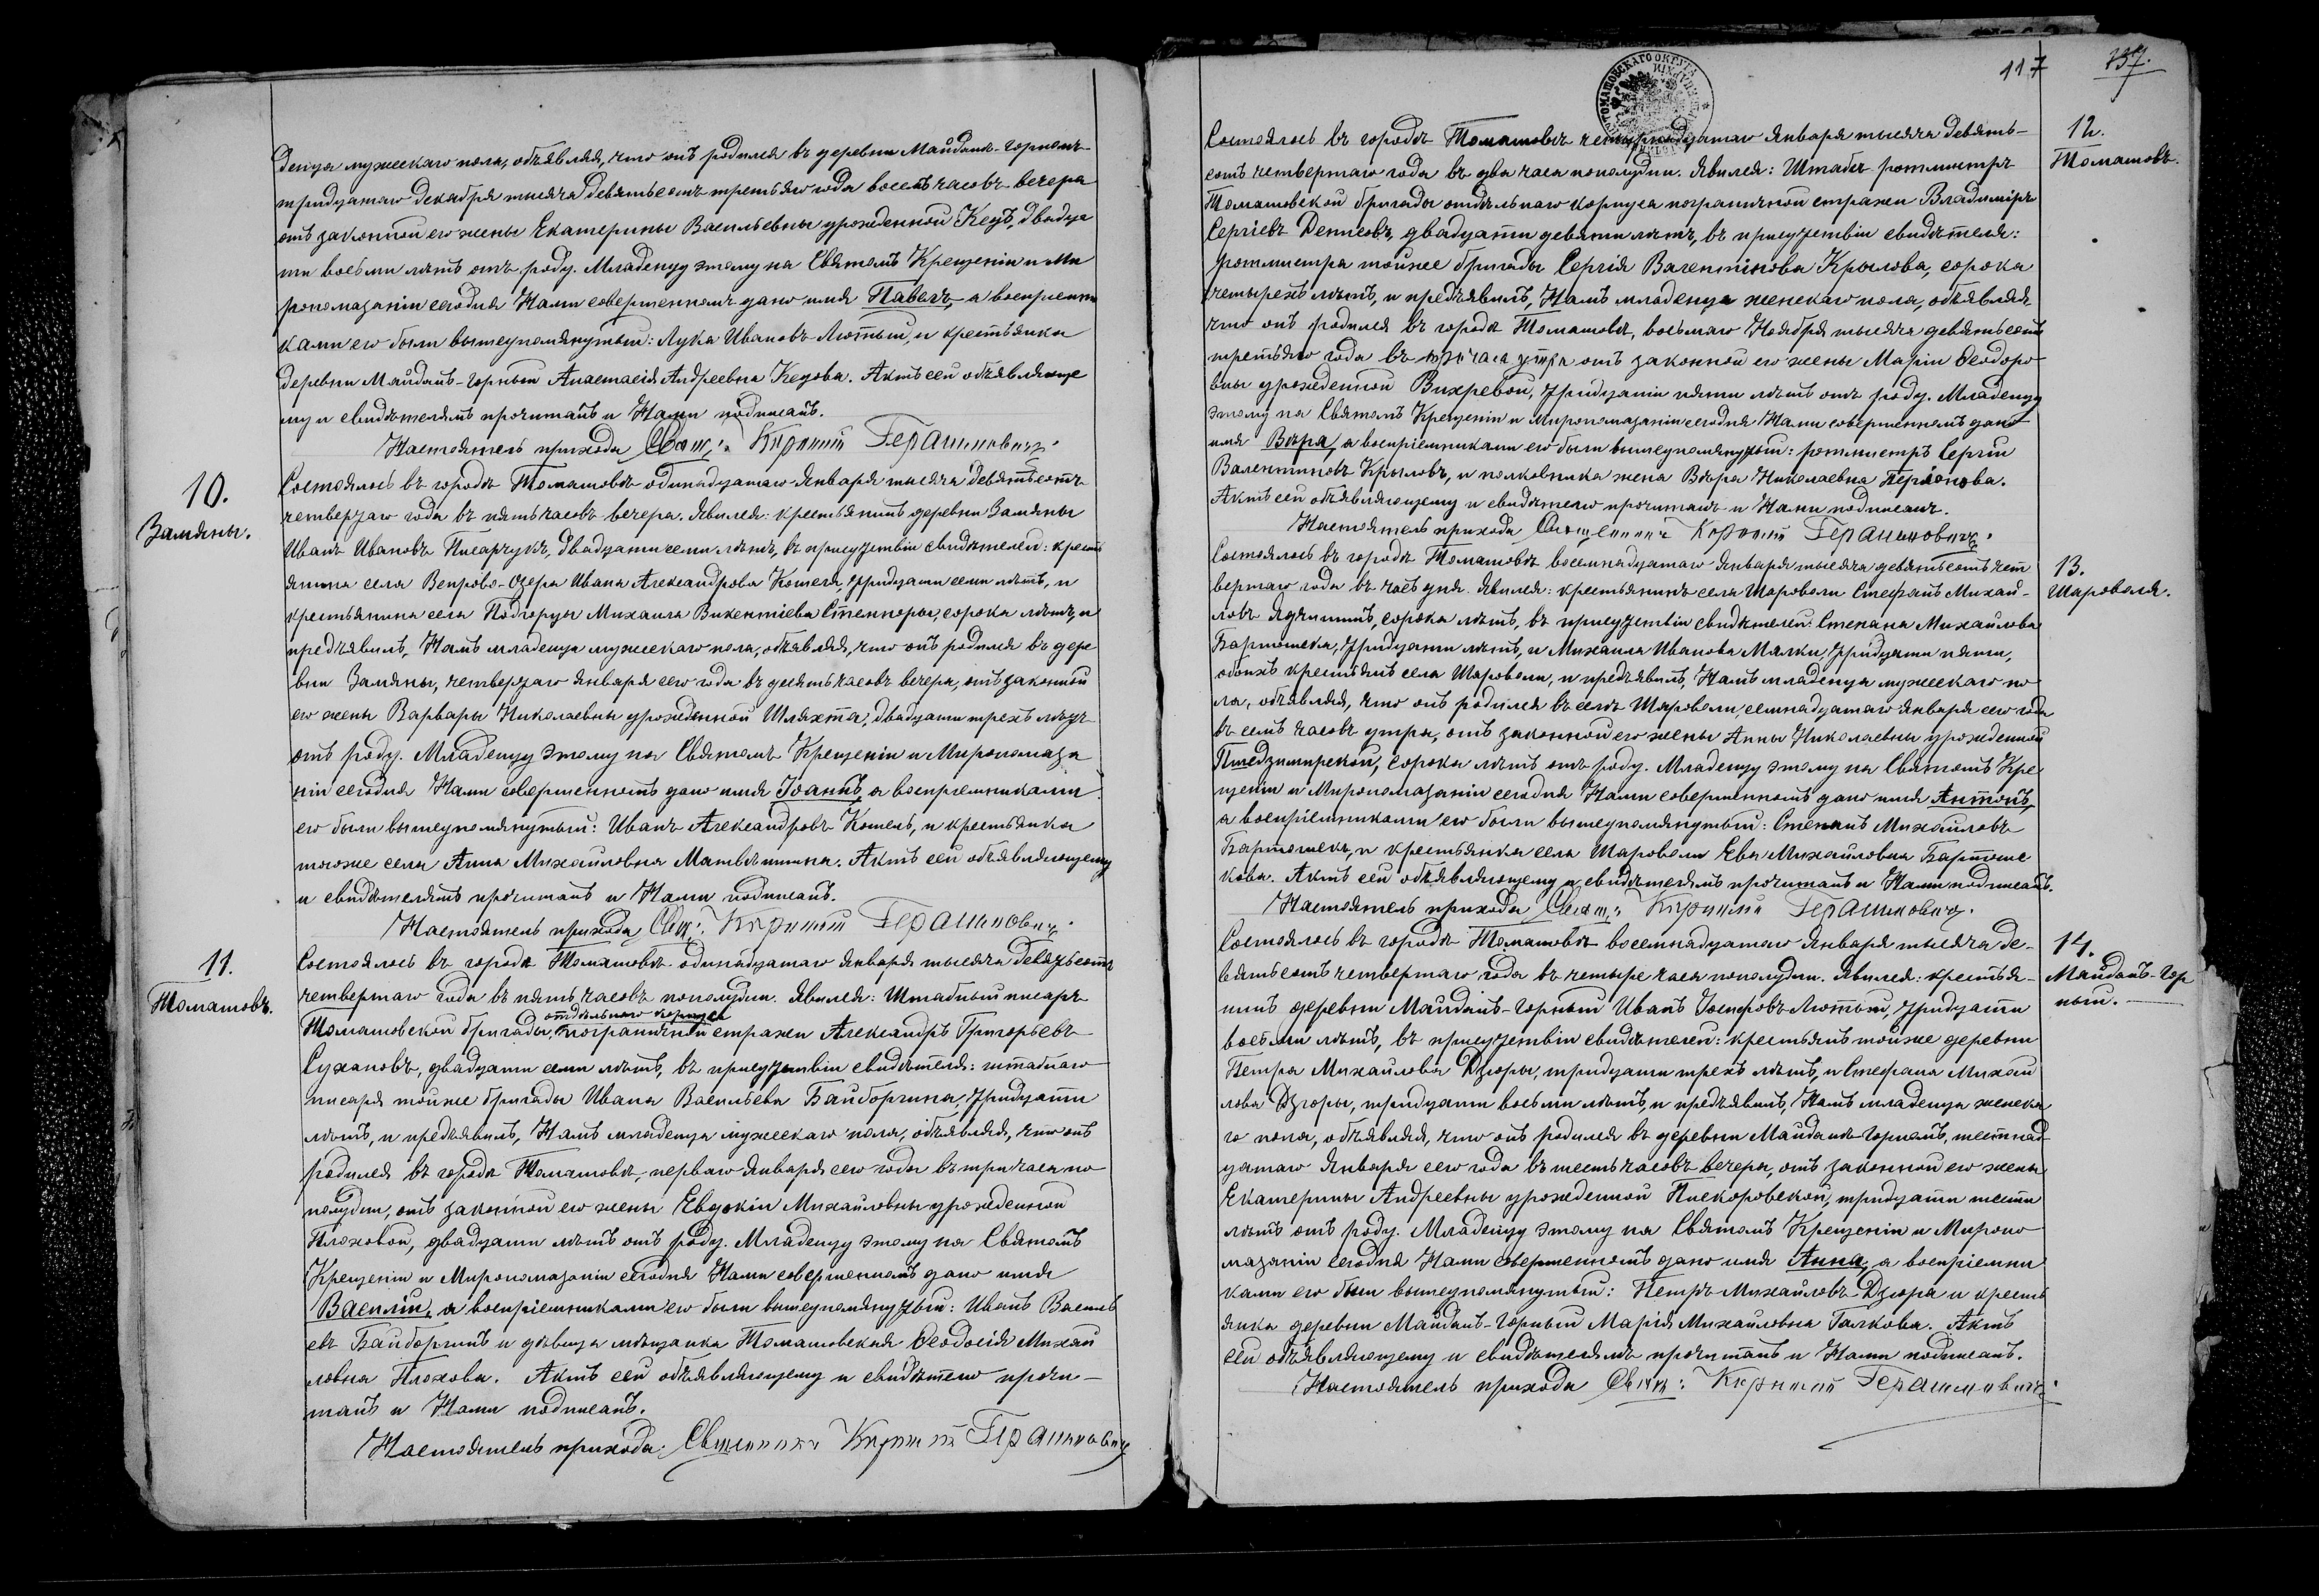 денца мужескаго пола, объявляя, что онъ родился въ деревни Майданъ-Горномъ
тридцатаго Декабря тысяча девятьсотъ третьяго года восемь часовъ вечера
отъ законной его жены Екатерины Васильевны урожденной Кецъ, двадца
ти восьми лѣтъ отъ роду. Младенцу этому на Святомъ Крещеніи и Ми
ропомазаніи сегодня Нами совершенномъ дано имя Павелъ, а воспріемни
ками его были вышеупомянутый: Лука Ивановъ Лютый, и крестьянка
деревни Майданъ-Горный Анастасія Андреевна Кецова. Актъ сей объявляюще
му и свидѣтелямъ прочитанъ и Нами подписанъ.
Настоятель прихода Свящ: Кириллъ Герасимовичъ.
10.
Замяны.
Состоялось въ городѣ Томашовѣ одинадцатаго Января тысяча девятьсотъ
четвертаго года въ пять часовъ вечера. Явился: крестьянинъ деревни Замяны
Иванъ Ивановъ Писарчукъ, двадцати семи лѣтъ, въ присутствіи свидѣтелей: кресть
янина села Вепрово-Озера Ивана Александрова Кошеля, тридцати семи лѣтъ, и
крестьянина села Подгорцы Михаила Викентіева Стенпоры, сорока лѣтъ, и
предъявилъ Намъ младенца мужескаго пола, объявляя, что онъ родился въ дере
вни Замяны, четвертаго Января сего года въ десять часовъ вечера, отъ законной
его жены Варвары Николаевны урожденной Шляхта, двадцати трехъ лѣтъ
отъ роду. Младенцу этому на Святомъ Крещеніи и Миропомаза
ніи сегодня Нами совершенномъ дано имя Іоаннъ, а воспріемниками
его были вышеупомянутый: Иванъ Александровъ Кошель, и крестьянка
тогоже села Анна Михайловна Матвѣишина. Актъ сей объявляющему
и свидѣтелямъ прочитанъ и Нами подписанъ.
Настоятель прихода Свящ: Кириллъ Герасимовичъ.
11.
Томашовъ.
Состоялось въ городѣ Томашовѣ одинадцатаго Января тысяча девятьсотъ
четвертаго года въ пять часовъ пополудни. Явился: Штабный писарь
отдѣльнаго корпуса
Томашовской бригады, пограничной стражи Александръ Григорьевъ
Сухановъ, двадцати семи лѣтъ, въ присутствіи свидѣтеля: штабнаго
писаря тойже бригады Ивана Васильева Байборгина, тридцати
лѣтъ, и предъявилъ, Намъ младенца мужескаго пола, объявляя, что онъ
родился въ городѣ Томашовѣ, перваго Января сего года въ три часа по
полудни, отъ законной его жены Евдокіи Михайловны урожденной
Плоховой, двадцати лѣтъ отъ роду. Младенцу этому на Святомъ
Крещеніи и Миропомазаніи сегодня Нами совершенномъ дано имя
Василій, а воспріемниками его были вышеупомянутый: Иванъ Василь
евъ Байборгинъ и дѣвица мѣщанка Томашовская Ѳеодосія Михай
ловна Плохова. Актъ сей объявляющему и свидѣтелю прочи-
танъ и Нами подписанъ.
Настоятель прихода: Священникъ Кириллъ Герасимовичъ
117 137.
12.
Томашовъ.
Состоялось въ городѣ Томашовѣ четырнадцатаго Января тысяча девять-
сотъ четвертаго года въ два часа пополудни. Явился: Штабъ-ротмистръ
Томашовской бригады отдѣльнаго корпуса пограничной стражи Владиміръ
Сергіевъ Денисовъ, двадцати девяти лѣтъ, въ присутствіи свидѣтеля:
ротмистра тойже бригады Сергія Валентинова Крылова, сорока
четырехъ лѣтъ, и предъявилъ, Намъ младенца женскаго пола, объявляя,
что онъ родился въ городѣ Томашовѣ, восьмаго Ноября тысяча девятьсотъ
третьяго года въ три часа утра отъ законной его жены Маріи Ѳеодоро
вны урожденной Вихревой, тридцати пяти лѣтъ отъ роду. Младенцу
этому на Святомъ Крещеніи и Миропомазаніи сегодня Нами совершенномъ дано
имя Вѣра, а воспріемниками его были вышеупомянутый: ротмистръ Сергій
Валентиновъ Крыловъ, и полковника жена Вѣра Николаевна Перлонова.
Актъ сей объявляющему и свидѣтелю прочитанъ и Нами подписанъ.
Настоятель прихода Священникъ Кириллъ Герасимовичъ.
13.
Шароволя.
Состоялось въ городѣ Томашовѣ восемнадцатаго Января тысяча девятьсотъ чет
вертаго года въ часъ дня. Явился: крестьянинъ села Шароволи Стефанъ Михай-
ловъ Ядчишинъ, сорока лѣтъ, въ присутствіи свидѣтелей: Степана Михайлова
Бартошека, тридцати лѣтъ, и Михаила Иванова Малки, тридцати пяти,
обоихъ крестьянъ села Шароволи, и предъявилъ, Намъ младенца мужескаго по
ла, объявляя, что онъ родился въ селѣ Шароволи, семнадцатаго Января сего года
въ семь часовъ утра, отъ законной его жены Анны Николаевны урожденной
Пшедзимирской, сорока лѣтъ отъ роду. Младенцу этому на Святомъ Кре
щеніи и Миропомазаніи сегодня Нами совершенномъ дано имя Антонъ,
а воспріемниками его были вышеупомянутый: Степанъ Михайловъ
Бартошекъ, и крестьянка села Шароволи Ева Михайловна Бартоше
кова. Актъ сей объявляющему и свидѣтелямъ прочитанъ и Нами подписанъ.
Настоятель прихода Свящ: Кириллъ Герасимовичъ.
14.
Майданъ-Гор
ный.
Состоялось въ городѣ Томашовѣ восемнадцатаго Января тысяча де-
вятьсотъ четвертаго года въ четыре часа пополудни. Явился: крестья-
нинъ деревни Майданъ-Горный Иванъ Іосифовъ Лютый, тридцати
восьми лѣтъ, въ присутствіи свидѣтелей: крестьянъ тойже деревни
Петра Михайлова Дзюры, тридцати трехъ лѣтъ, и Стефана Михай
лова Дзюры, тридцати восьми лѣтъ, и предъявилъ, Намъ младенца женска
го пола, объявляя, что онъ родился въ деревни Майданъ-Горномъ, шестнад
цатаго Января сего года въ шесть часовъ вечера, отъ законной его жены
Екатерины Андреевны урожденной Пискоровской, тридцати шести
лѣтъ отъ роду. Младенцу этому на Святомъ Крещеніи и Миропо
мазаніи сегодня Нами совершенномъ дано имя Анна, а воспріемни
ками его были вышеупомянутый: Петръ Михайловъ Дзюра и кресть
янка деревни Майданъ-Горный Марія Михайловна Галкова. Актъ
сей объявляющему и свидѣтелямъ прочитанъ и Нами подписанъ.
Настоятель прихода Свящ: Кириллъ Герасимовичъ.